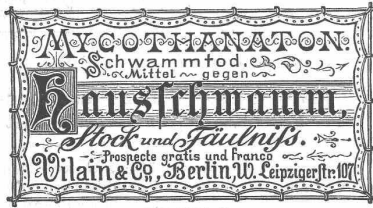 MYCOTHANATON.
Schwammtod.
Mittel gegen
Hausſchwamm,
Stock und Fäulniſs.
Prospecte gratis und franco
Vilain & Co, Berlin, W. Leipzigerstr. 107